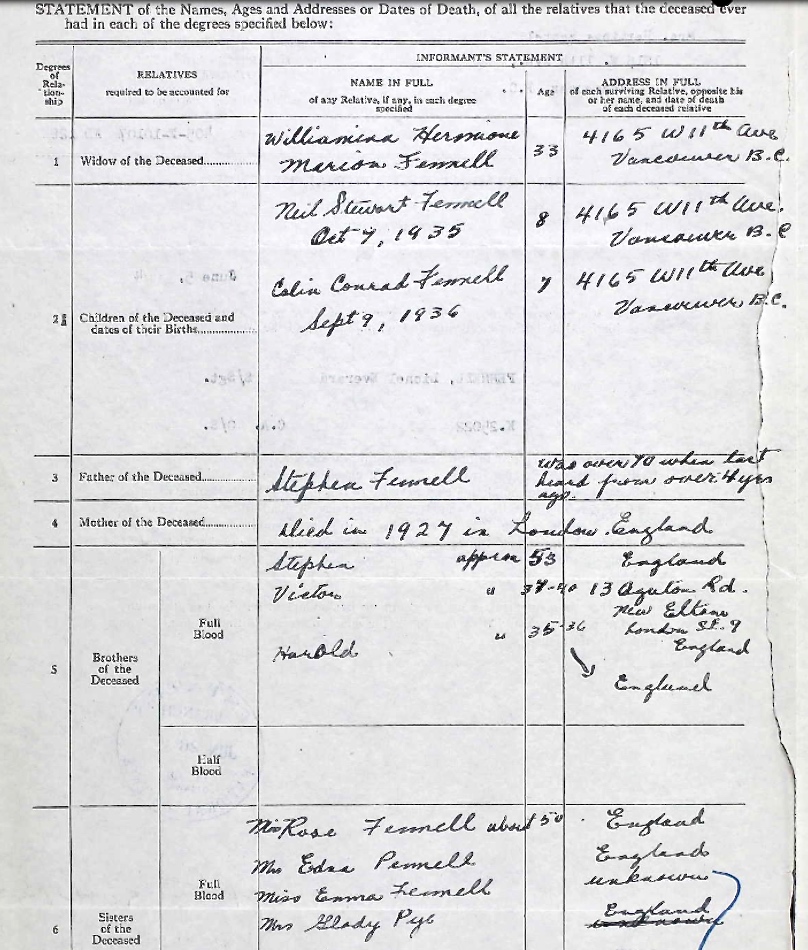 STATEMENT of the Names, Ages and Addresses or Dates of Death, of all the relatives that the deceased ever
had in each of the degrees specified below:
Degrees of Rela-tion-ship
RELATIVES
required to be accounted for
INFORMANT'S STATEMENT
NAME IN FULL
of any Relative, if any, in each degree specified
Age
ADDRESS IN FULL
of each surviving Relative, opposite his or her name, and date of death of each deceased relative
1 Widow of the Deceased
Williamina Hermione 4165 W 11th Ave
Marion Fennell 33 Vancouver B.C.
Neil Stewart Fennell 8 4165 W 11th Ave.
Oct 7, 1935 Vancouver B.C
Colin Conrad Fennell 7 4165 W 11th Ave
Sept 9, 1936 Vancouver B.C.
2 Children of the Deceased and
dates of their Births
FENNELL, Lionel
3 Father of the Deceased
Stephen Fennell
was over 70 when last
heard from over 4 yrs
ago.
4 Mother of the Deceased
Died in 1927 in London England
5 Brothers of the Deceased
Full Blood
Stephen approx 53 England
Victor " 37-40 13 Rd.
New Eltham
Harold " 35-36 London S.E. 9
England
England
Half Blood
6 Sisters of the Deceased
Full Blood
Miss Rose Fennell about 50 England
Mrs Edna Pennell England
Miss Emma Fennell unknown
Mrs Glady Pye England
unknown